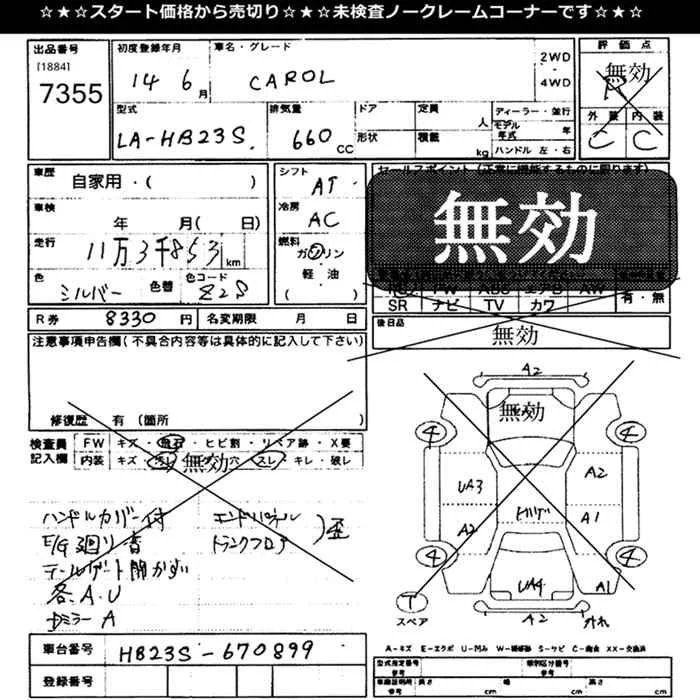 ☆★☆スタート価格から売切り☆★☆未検査ノークレームコーナーです☆★☆
出品番号
[1884]
7355
初度登録年月
14 6月
車名・グレード
CAROL
2WD
4WD
評価点
無効
R
外装 内装
C C
型式
LA-HB23S.
排気量
660 CC
ドア
形状
定員
人
積載
kg
ディーラー・並行
モデル年式
年
ハンドル 左・右
車歴
自家用・( )
シフト
AT
セールスポイント (正常に機能するものに限ります)
無効
車検
年 月( 日)
冷房
AC
走行
11万3千853 km
燃料
ガソリン
軽油
( )
色
シルバー
色替
色コード
Z2S
SR ナビ TV カワ
有・無
R券 8330 円
名変期限 月 日
後日品
無効
注意事項申告欄(不具合内容等は具体的に記入して下さい)
修復歴 有 (箇所 )
検査員記入欄
FW キズ・飛石・ヒビ割・リペア跡・X要
内装 キズ・汚レ・穴・スレ・キレ・破レ
無効
ハンドルカバー付
E/G廻り音
テールゲート開かず
各A.U
ドミラーA
エンドパネル
トランクフロア
)歪
A2
無効
4 4
UA3
A2
A2
A1
4 4
UA4
A1
T
スペア
A2
外れ
車台番号
HB23S-670899
登録番号
A-キズ E-エクボ U-凹み W-補修跡 S-サビ C-腐食 XX-交換済
型式指定番号
参考
類別区分番号
参考
車検証記載
参考
長さ cm
幅 cm
高さ cm